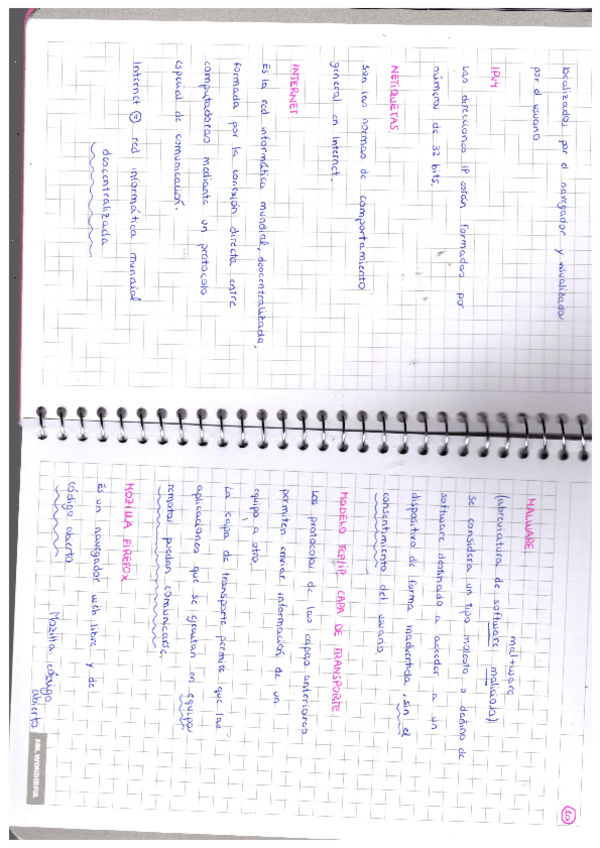 localizados por el navegador y visualizados
por el usuario
IPv4
Las direcciones IP están formadas por
números de 32 bits.
NETIQUETAS
son las normas de comportamiento
general en Internet.
INTERNET
Es la red informática mundial, descentralizada,
formada por la conexión directa entre
computadoras mediante un protocolo
especial de comunicación.
Internet = red informática mundial
descentralizada
10
MALWARE
mal+ware
(abreviatura de software malicioso)
se considera un tipo molesto o dañino de
software destinado a acceder a un
dispositivo de forma inadvertida, sin el
consentimiento del usuario
MODELO TCP/IP CAPA DE TRANSPORTE
Los protocolos de las capas anteriores
permiten enviar información de un
equipo a otro.
La capa de transporte permite que las
aplicaciones que se ejecutan en equipos
remotos puedan comunicarse.
MOZILLA FIREFOX
Es un navegador web libre y de
código abierto
Mozilla código
abierto
MR. WONDERFUL